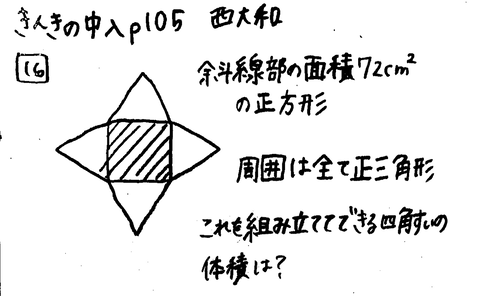 きんきの中入p105 西大和
16
斜線部の面積72cm²
の正方形
周囲は全て正三角形
これを組み立ててできる四角すいの
体積は?